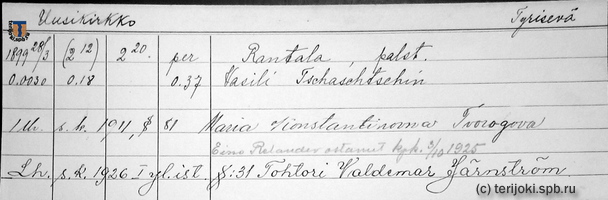 Uusikirkko Tyrisevä
1899 28/3 (2 12) 2 20. per Rantala, palst.
0.0030 0.18 0.37 Vasili Tschaschtschin
1 lk. s.k. 1911, § 81 Maria Konstantinovna Tvorogova
Eino Relander ostanut kpk. 3/10 1925
Lh. s.k. 1926. I yl. ist. §:31 Tohtori Valdemar Järnström
(c) terijoki.spb.ru